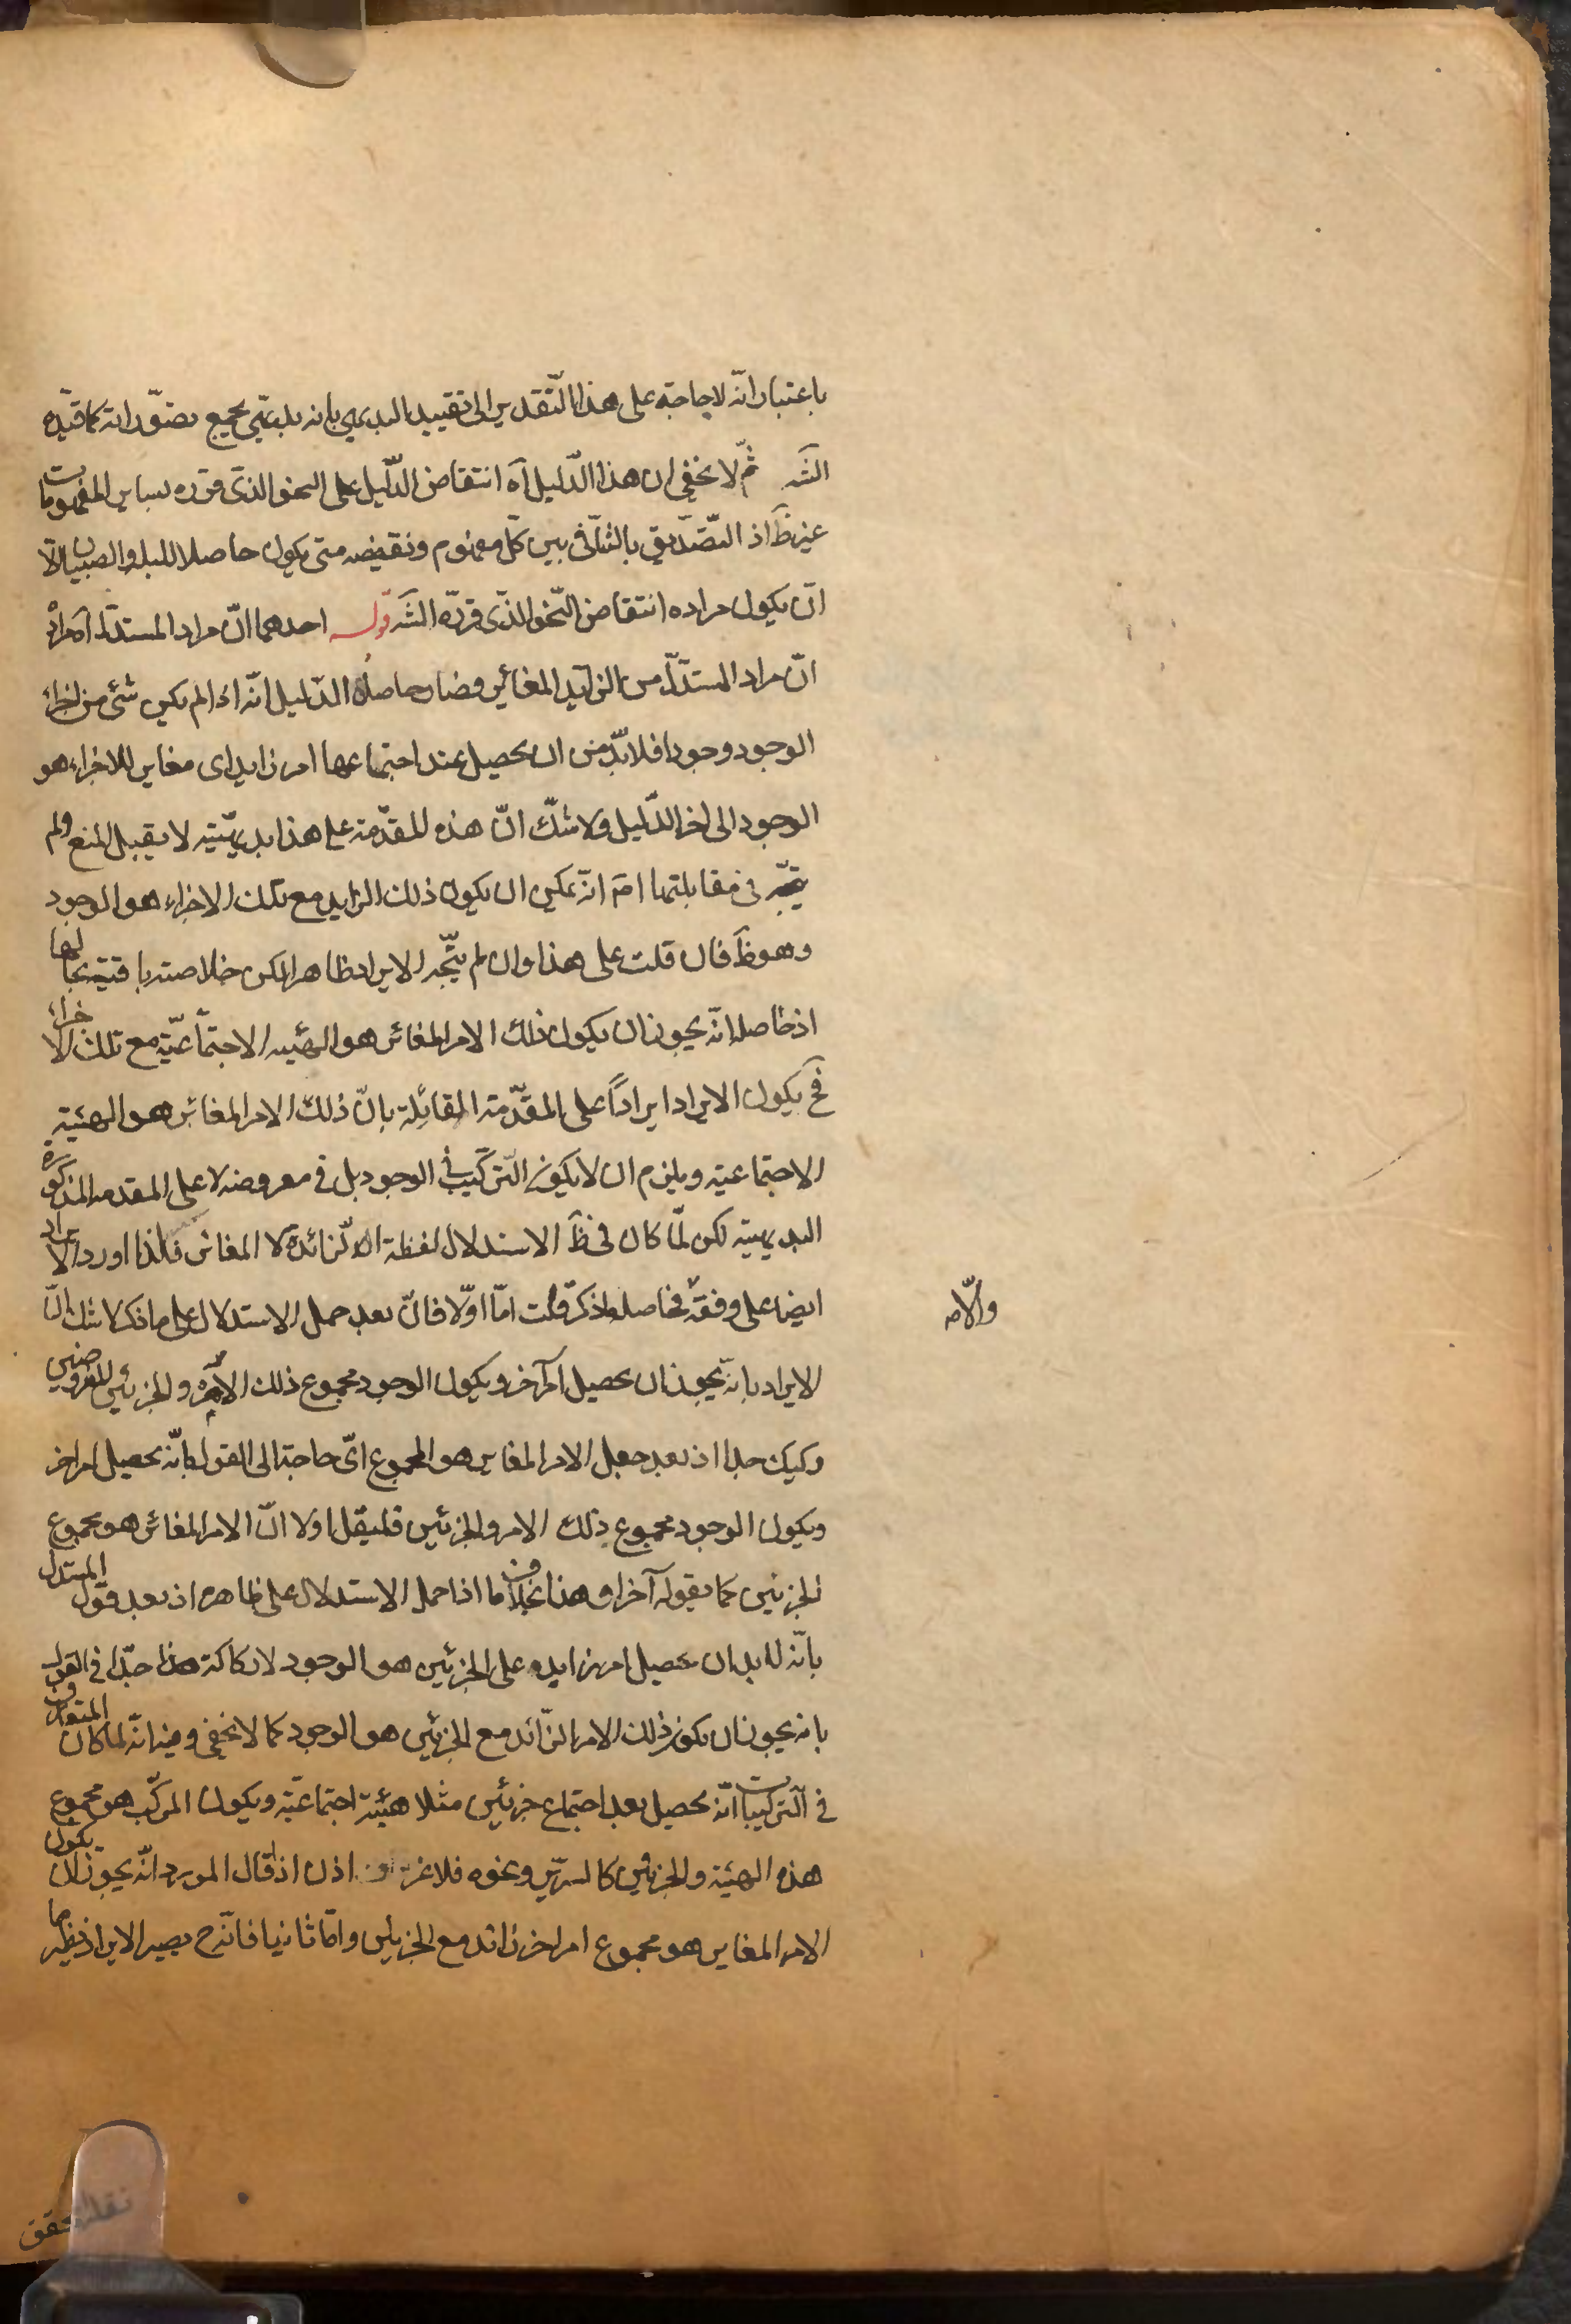 باعتبار انّه لا حاجة على هذا التّقدير الى تقييد البديهي بانه بديهي بجميع تصوّراته كما قيّده
الشَه ثمّ لا يخفى ان هذا الدّليل آه انتقاض الدّليل على النحو الذى قرره بساير المفهومات
غير ظَ اذ التّصديق بالتنافى بين كلّ مفهوم ونقيضه متى يكون حاصلا للبله والصبيان الّا
انّ يكون مراده انتقاض النّحو الذّى قرّره الشَه قوله احدهما انّ مراد المستدلّ آه مراده
انّ مراد المستدلّ من الزايد المغائر فصار حاصل الدّليل انّه اذا لم يكن شئ من اجزاء
الوجود وجودا فلابدّ من ان يحصل عند اجتماعها امر زايد اى مغاير للاجزاء هو
الوجود الى اخر الدّليل ولا شكّ انّ هذه المقدّمة على هذا بديهيّة لا يقبل المنع ولم
يتّجه فى مقابلتها امَه انّه يمكن ان يكون ذلك الزايد مع تلك الاجزاء هو الوجود
وهو ظَ فان قلت على هذا وان لم يتّجه الايراد ظاهرا لكن خلاصته باقية بحالها
اذ حاصله انّه يجوز ان يكون ذلك الامر المغائر هو الهيئه الاجتماعيّة مع تلك الاجزاء
فَح يكون الايراد ايراداً على المقدّمة القائلة بانّ ذلك الامر المغائر هو الهيئة
الاجتماعية ويلزم ان لا يكون التّركيب فى الوجود بل فى معروضه لا على المقدمه المذكورة
البديهية لكن لمّا كان فى ظَ الاستدلال لفظة الزّائد لا المغائر فلذا اورد الايراد
ايضا على وفقه فحاصله ما ذكر قلت امّا اوّلا فانّ بعد حمل الاستدلال على ما ذكر لا شك انّ
والّا مه
الايراد بانّه يجوز ان يحصل امر آخر ويكون الوجود مجموع ذلك الامر والجزئين المفروضين
ركيك جدا اذ بعد جعل الامر المغاير هو المجموع اىّ حاجة الى القول بانّه يحصل امر اخر
ويكون الوجود مجموع ذلك الامر والجزئين فليقل اولا انّ الامر المغائر هو مجموع
الجزئين كما يقوله آخرا وهذا بخلاف ما اذا حمل الاستدلال على ظاهره اذ بعد قول المستدل
بانّه لابد ان يحصل امر زايد على الجزئين هو الوجود لا ركاكة هذا جدّا فى القول
بانه يجوز ان يكون ذلك الامر الزّائد مع الجزئين هو الوجود كما لا يخفى وفيه انّه لما كان المتعارف
فى التّركيبات انّه يحصل بعد اجتماع جزئين مثلا هيئة اجتماعيّة ويكون المركّب هو مجموع
هذه الهيئة والجزئين كالسرير ونحوه فلا اذن اذا قال المورد انّه يجوز ان يكون
الامر المغاير هو مجموع امر اخر زائد مع الجزئين وامّا ثانيا فانّه ح يصير الايراد نظير ما